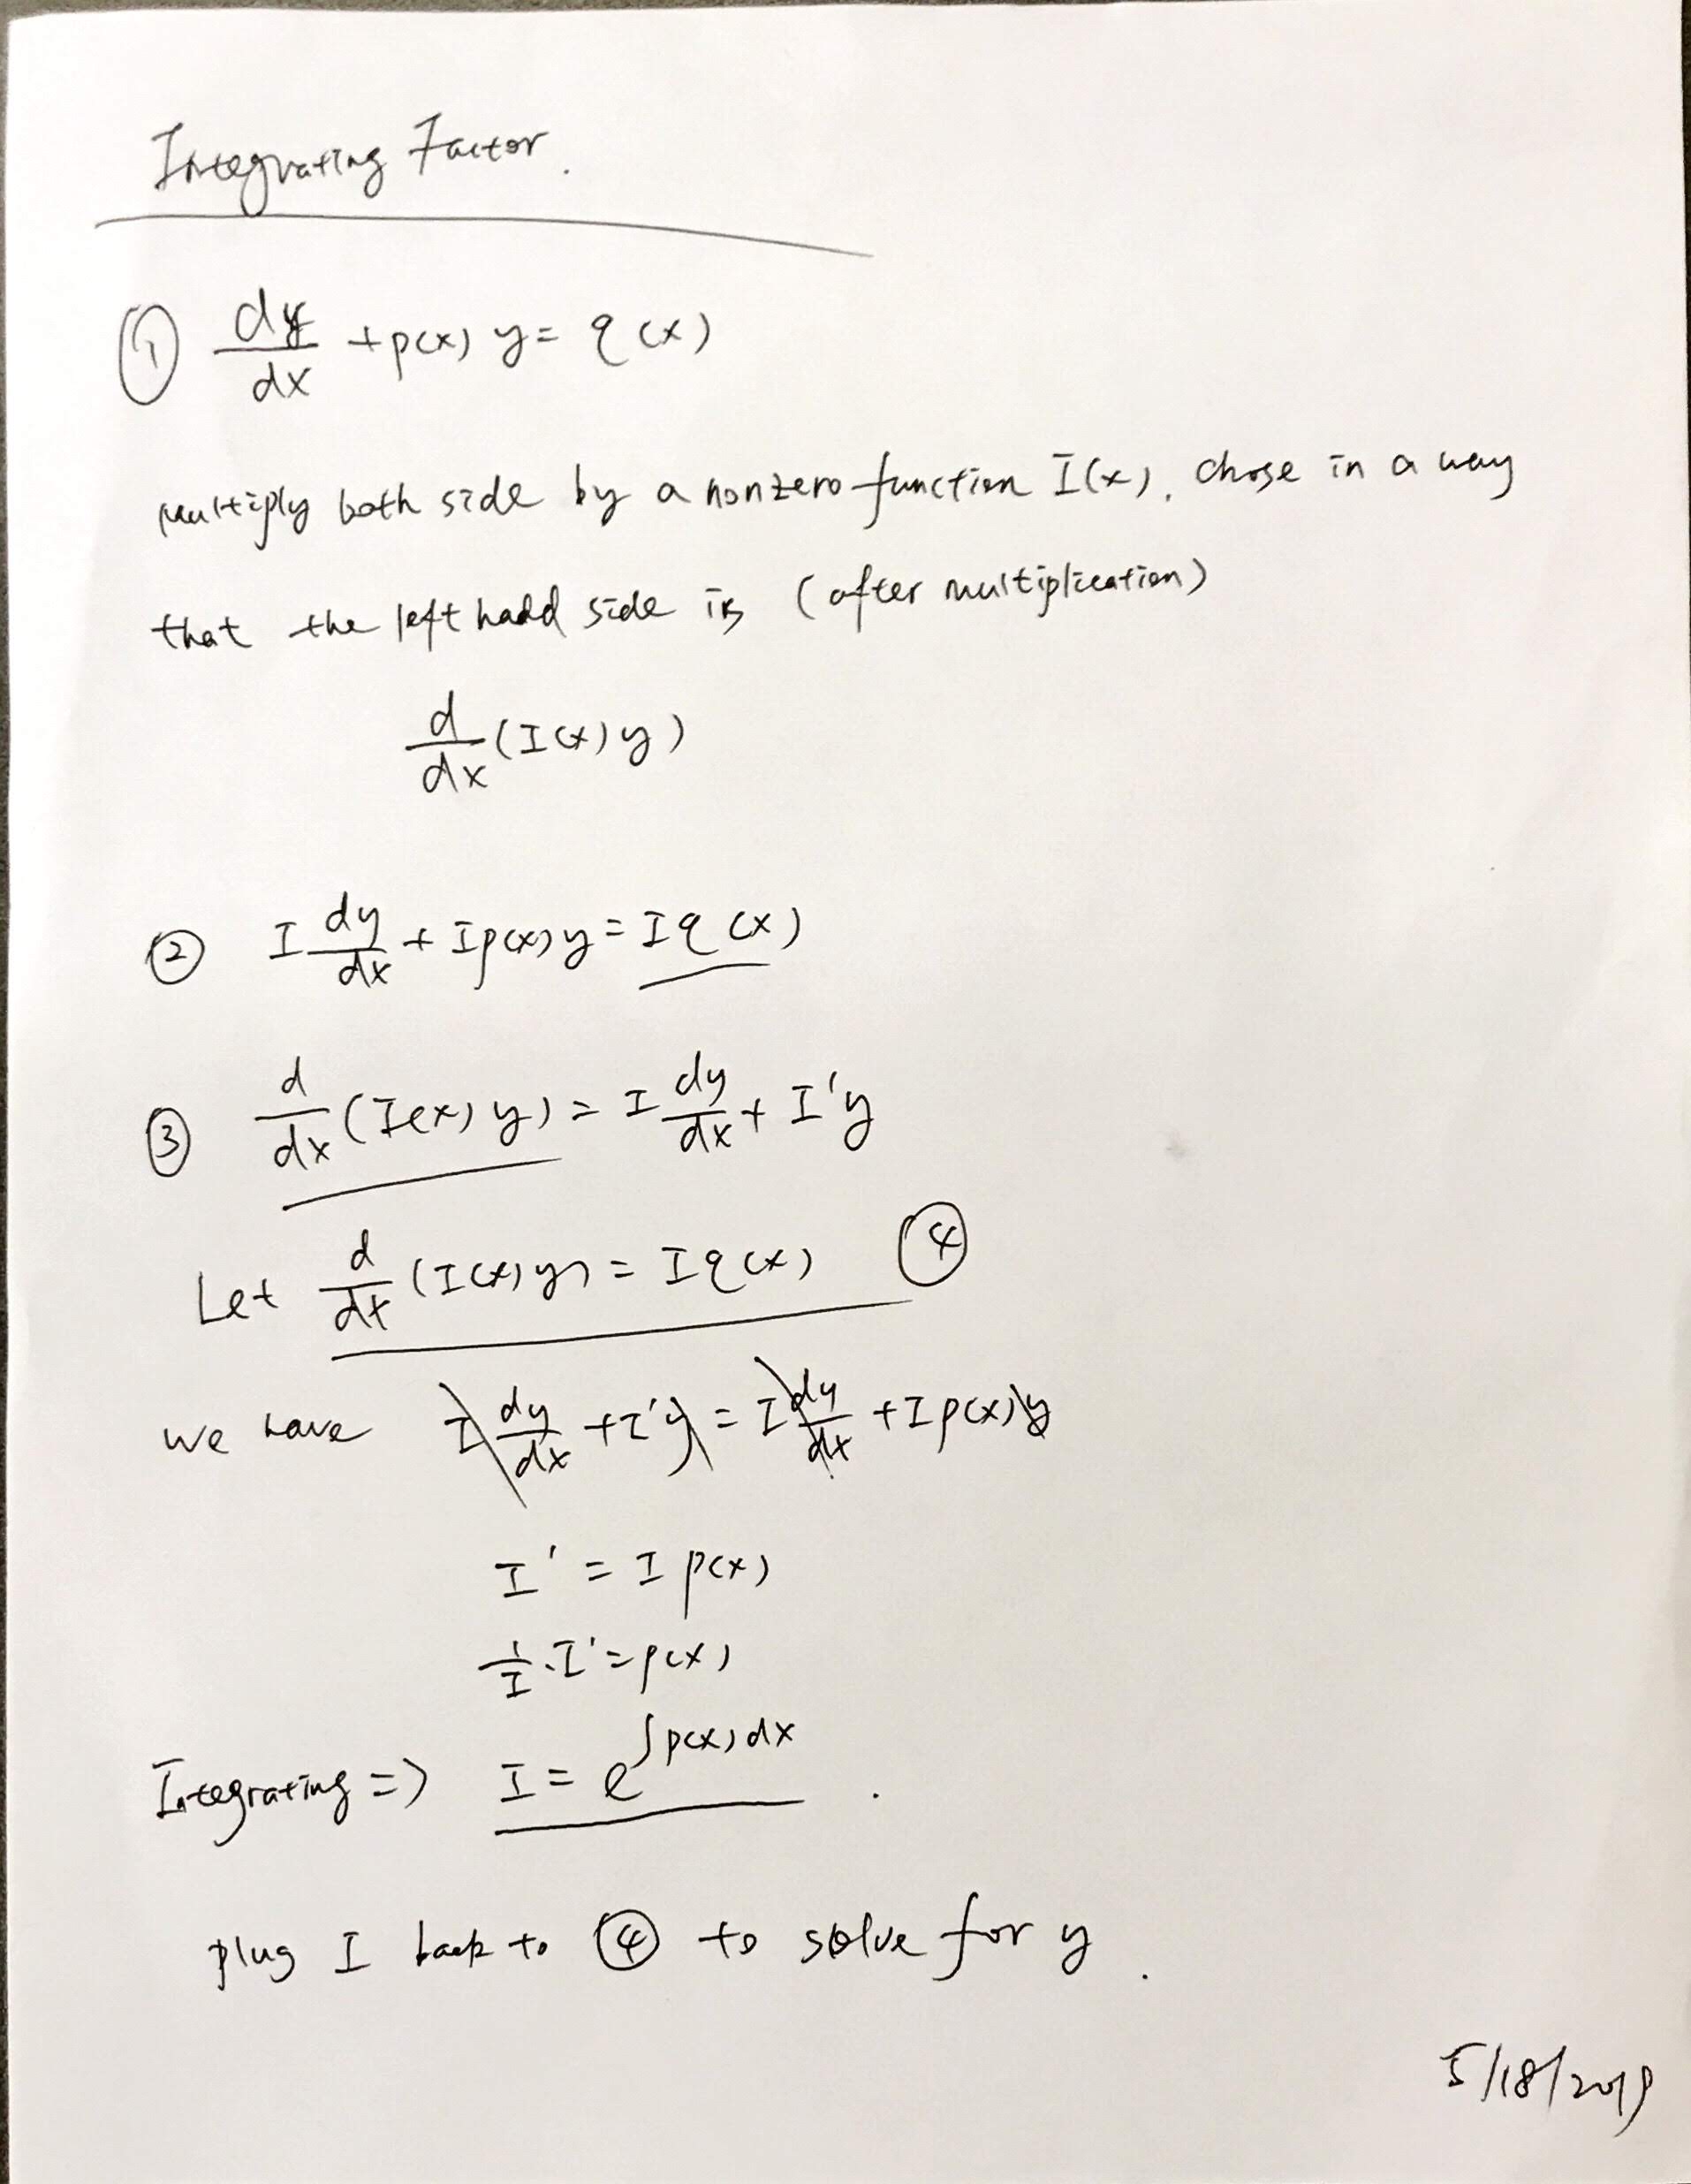 Integrating Factor.
① dy/dx + p(x) y = q(x)
Multiply both side by a nonzero function I(x), chose in a way
that the left hadd side is (after multiplication)
d/dx (I(x) y)
② I dy/dx + I p(x) y = I q(x)
③ d/dx (I(x) y) = I dy/dx + I'y
Let d/dx (I(x) y) = I q(x) ④
We have I dy/dx + I'y = I dy/dx + I p(x) y
I' = I p(x)
1/I · I' = p(x)
Integrating => I = e^∫p(x)dx .
plug I back to ④ to solve for y.
5/18/2019